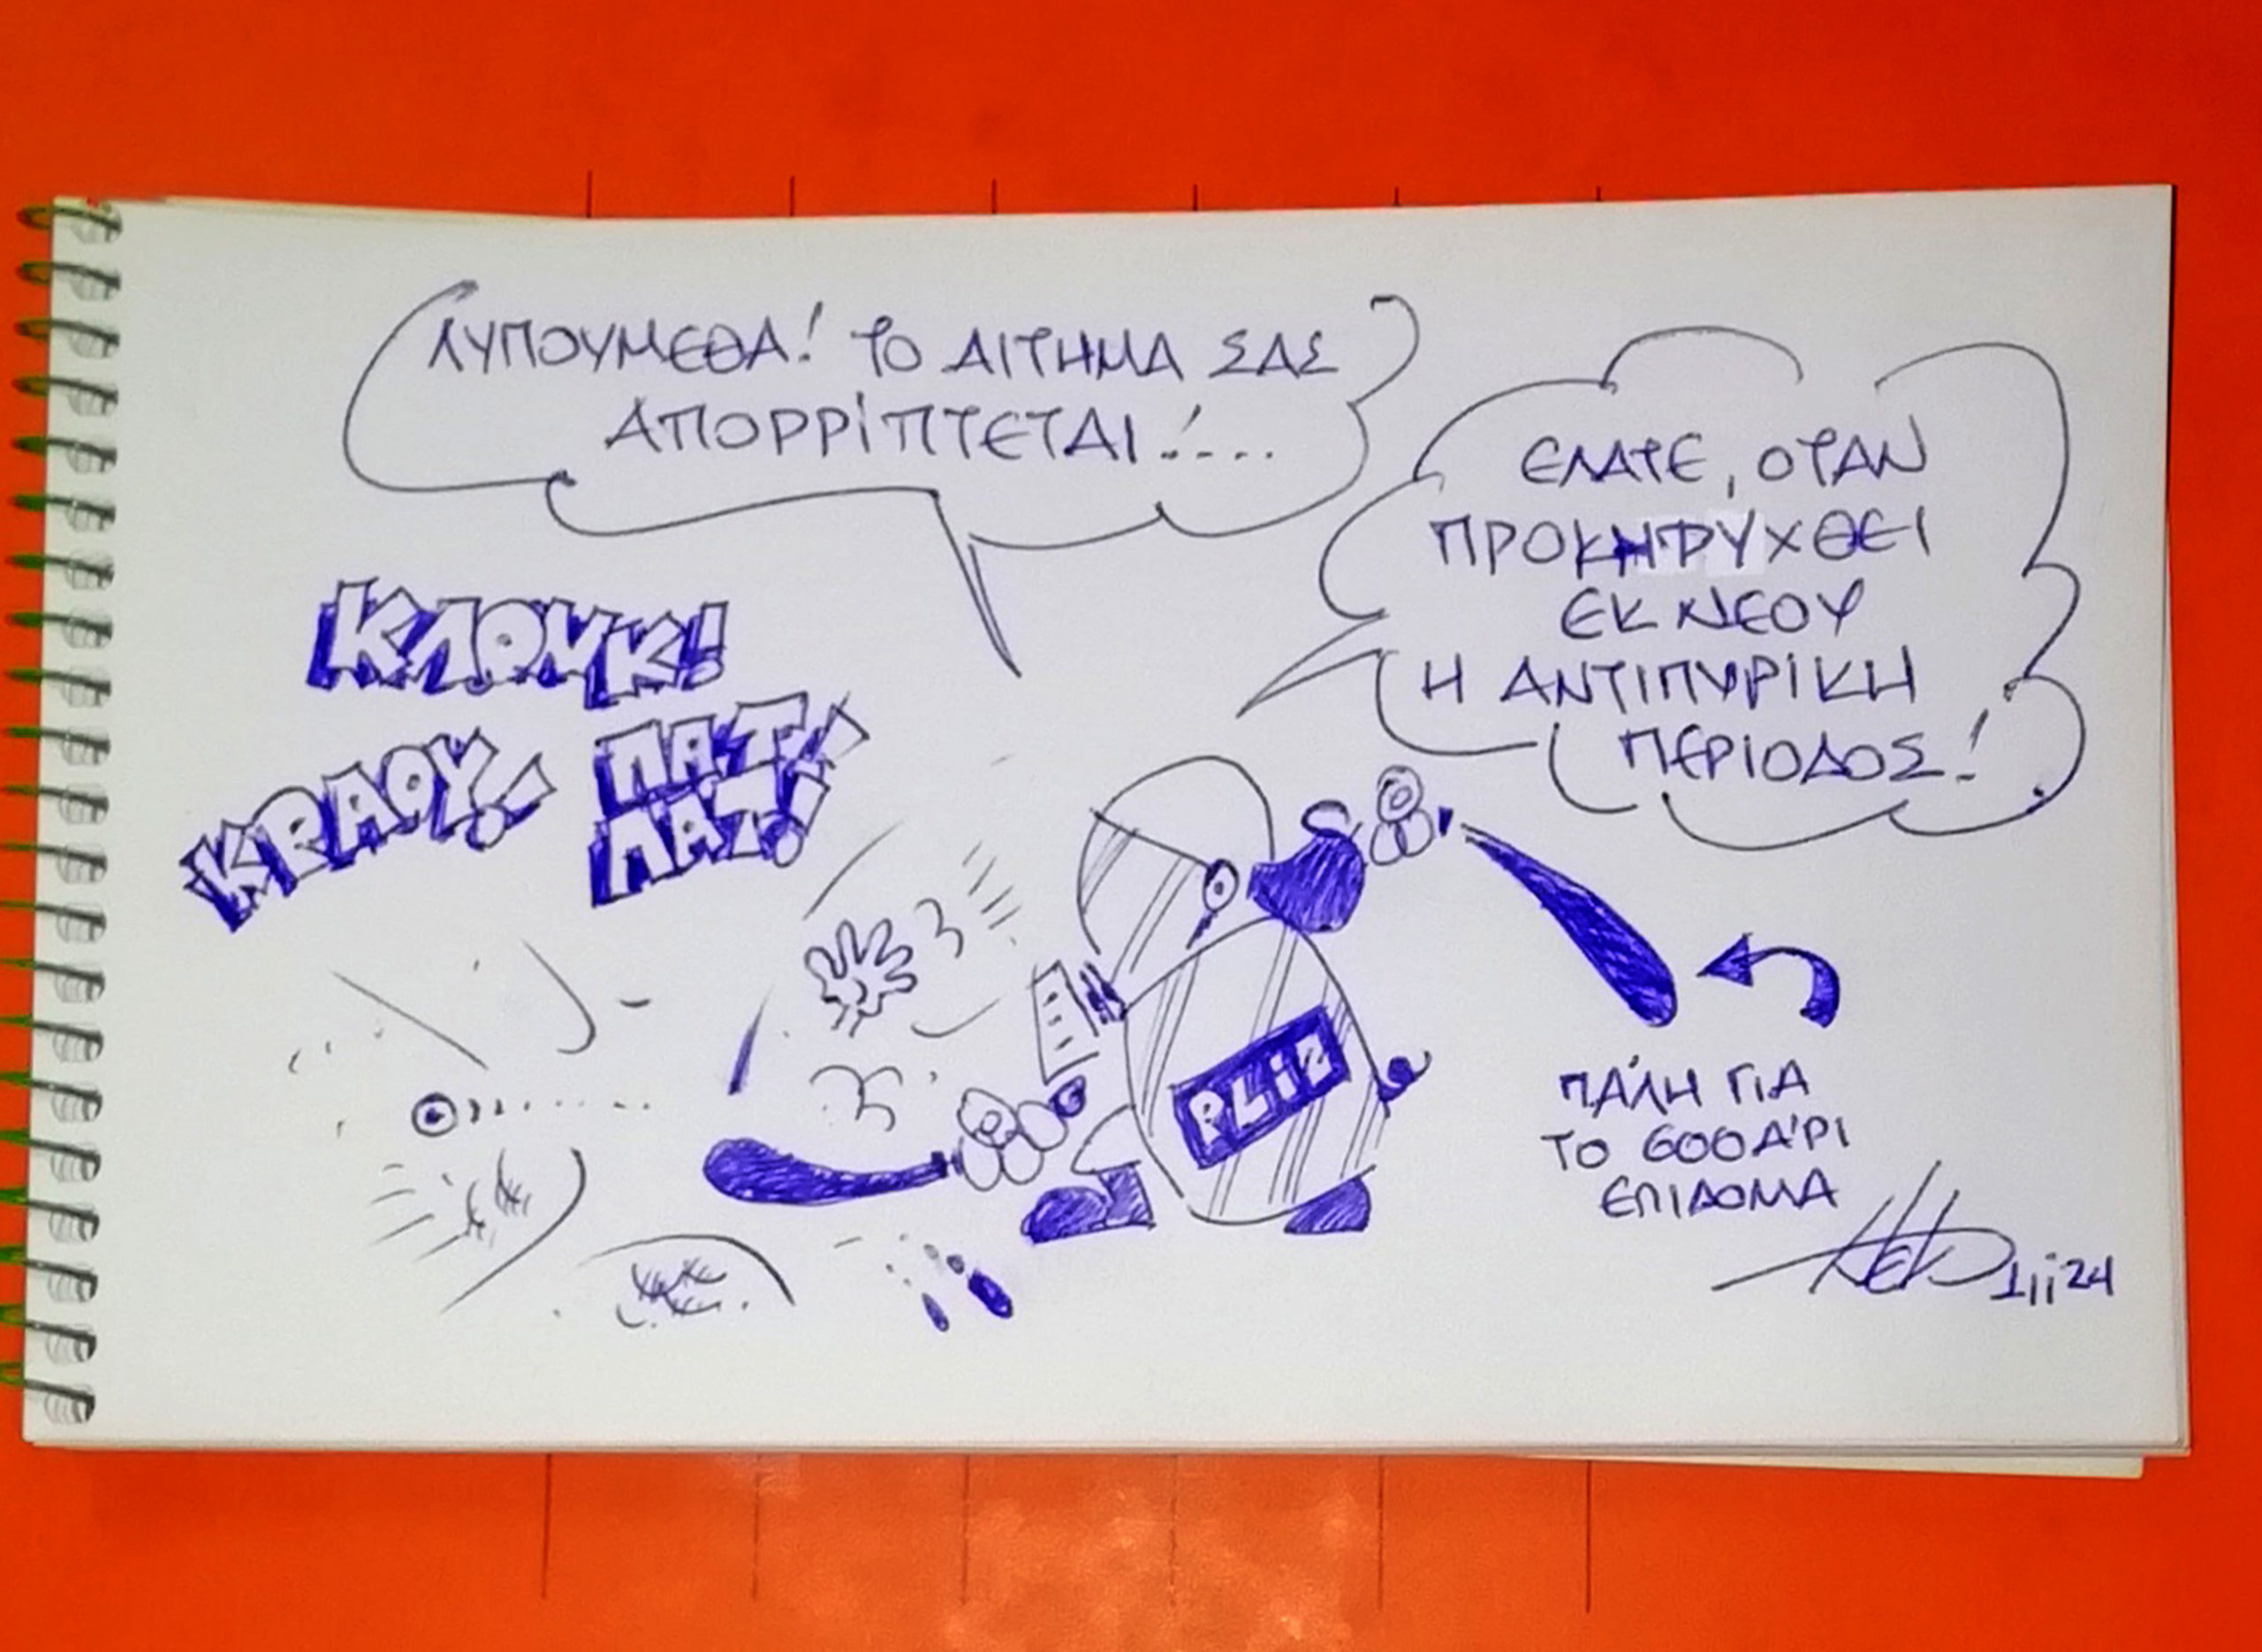 ΛΥΠΟΥΜΕΘΑ! ΤΟ ΑΙΤΗΜΑ ΣΑΣ
ΑΠΟΡΡίΠΤΕΤΑΙ!...
ΕΛΑΤΕ, ΟΤΑΝ
ΠΡΟΚΗΡΥΧΘΕΙ
ΕΚ ΝΕΟΥ
Η ΑΝΤΙΠΥΡΙΚΗ
ΠΕΡΙΟΔΟΣ!
ΚΛΟΝΚ!
ΚΡΑΟΥ!
ΠΑΤ!
ΠΑΤ!
PLiz
ΠΆΛΗ ΓΙΑ
ΤΟ 600ΆΡΙ
ΕΠΙΔΟΜΑ
1ii24